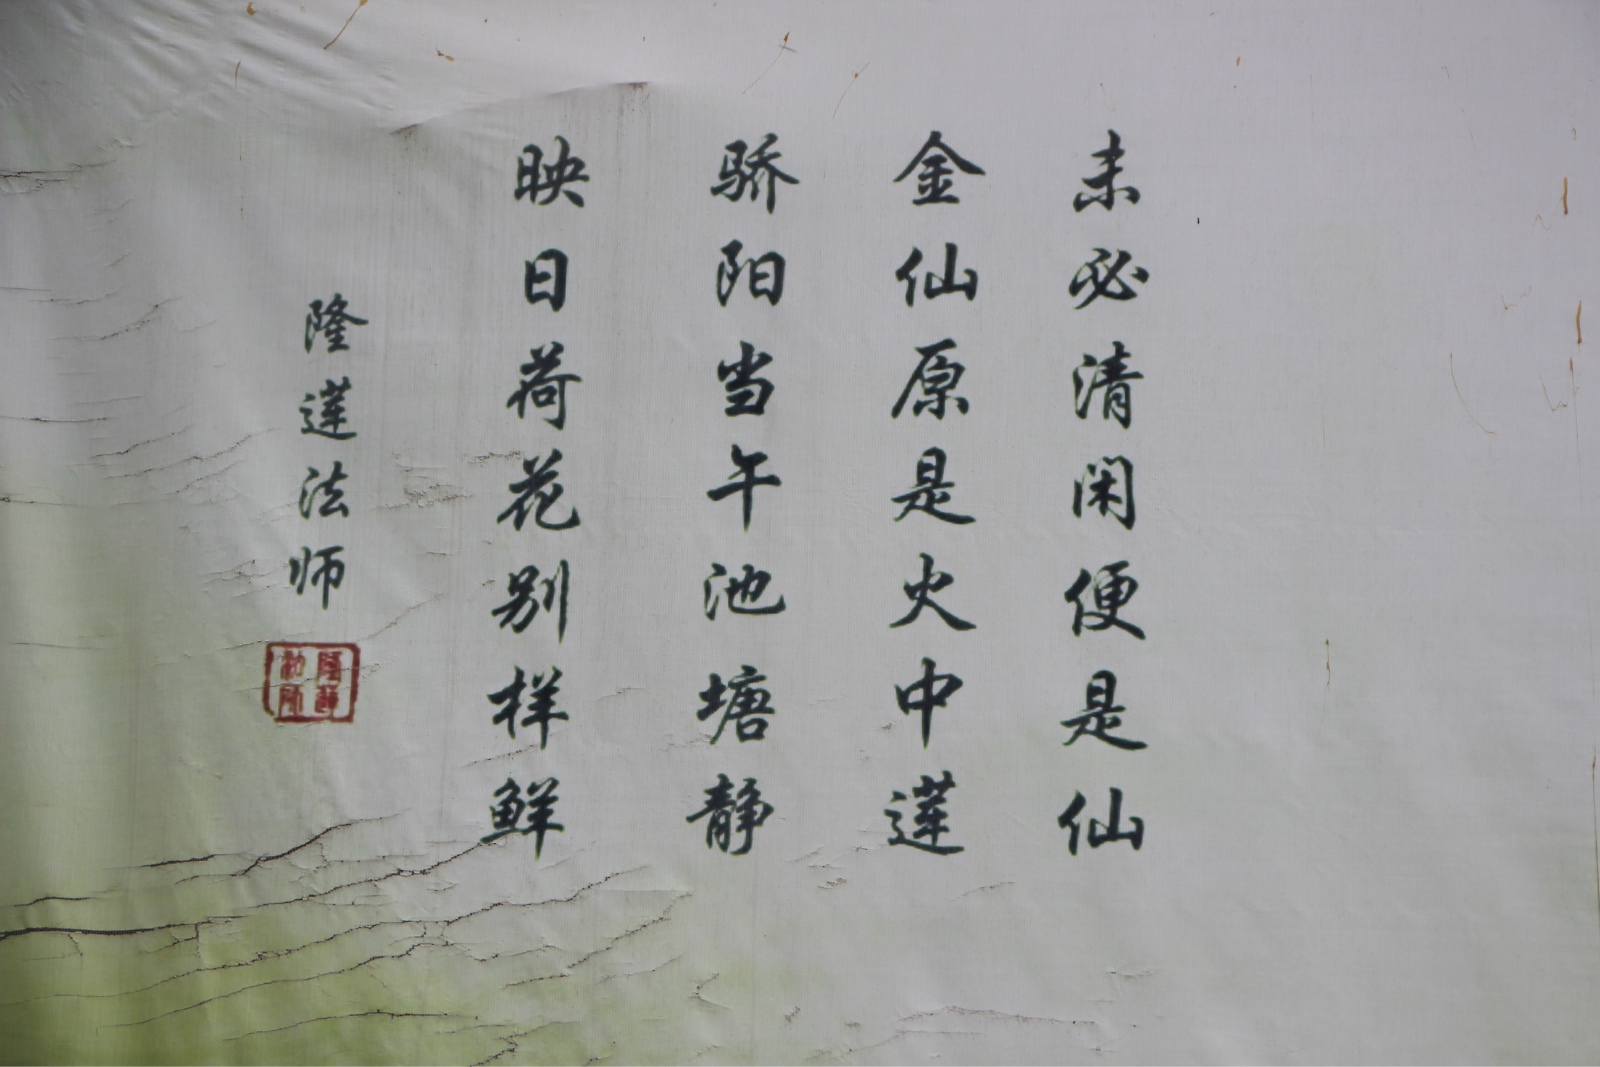 未必清闲便是仙
金仙原是火中莲
骄阳当午池塘静
映日荷花别样鲜
隆莲法师
隆莲法师